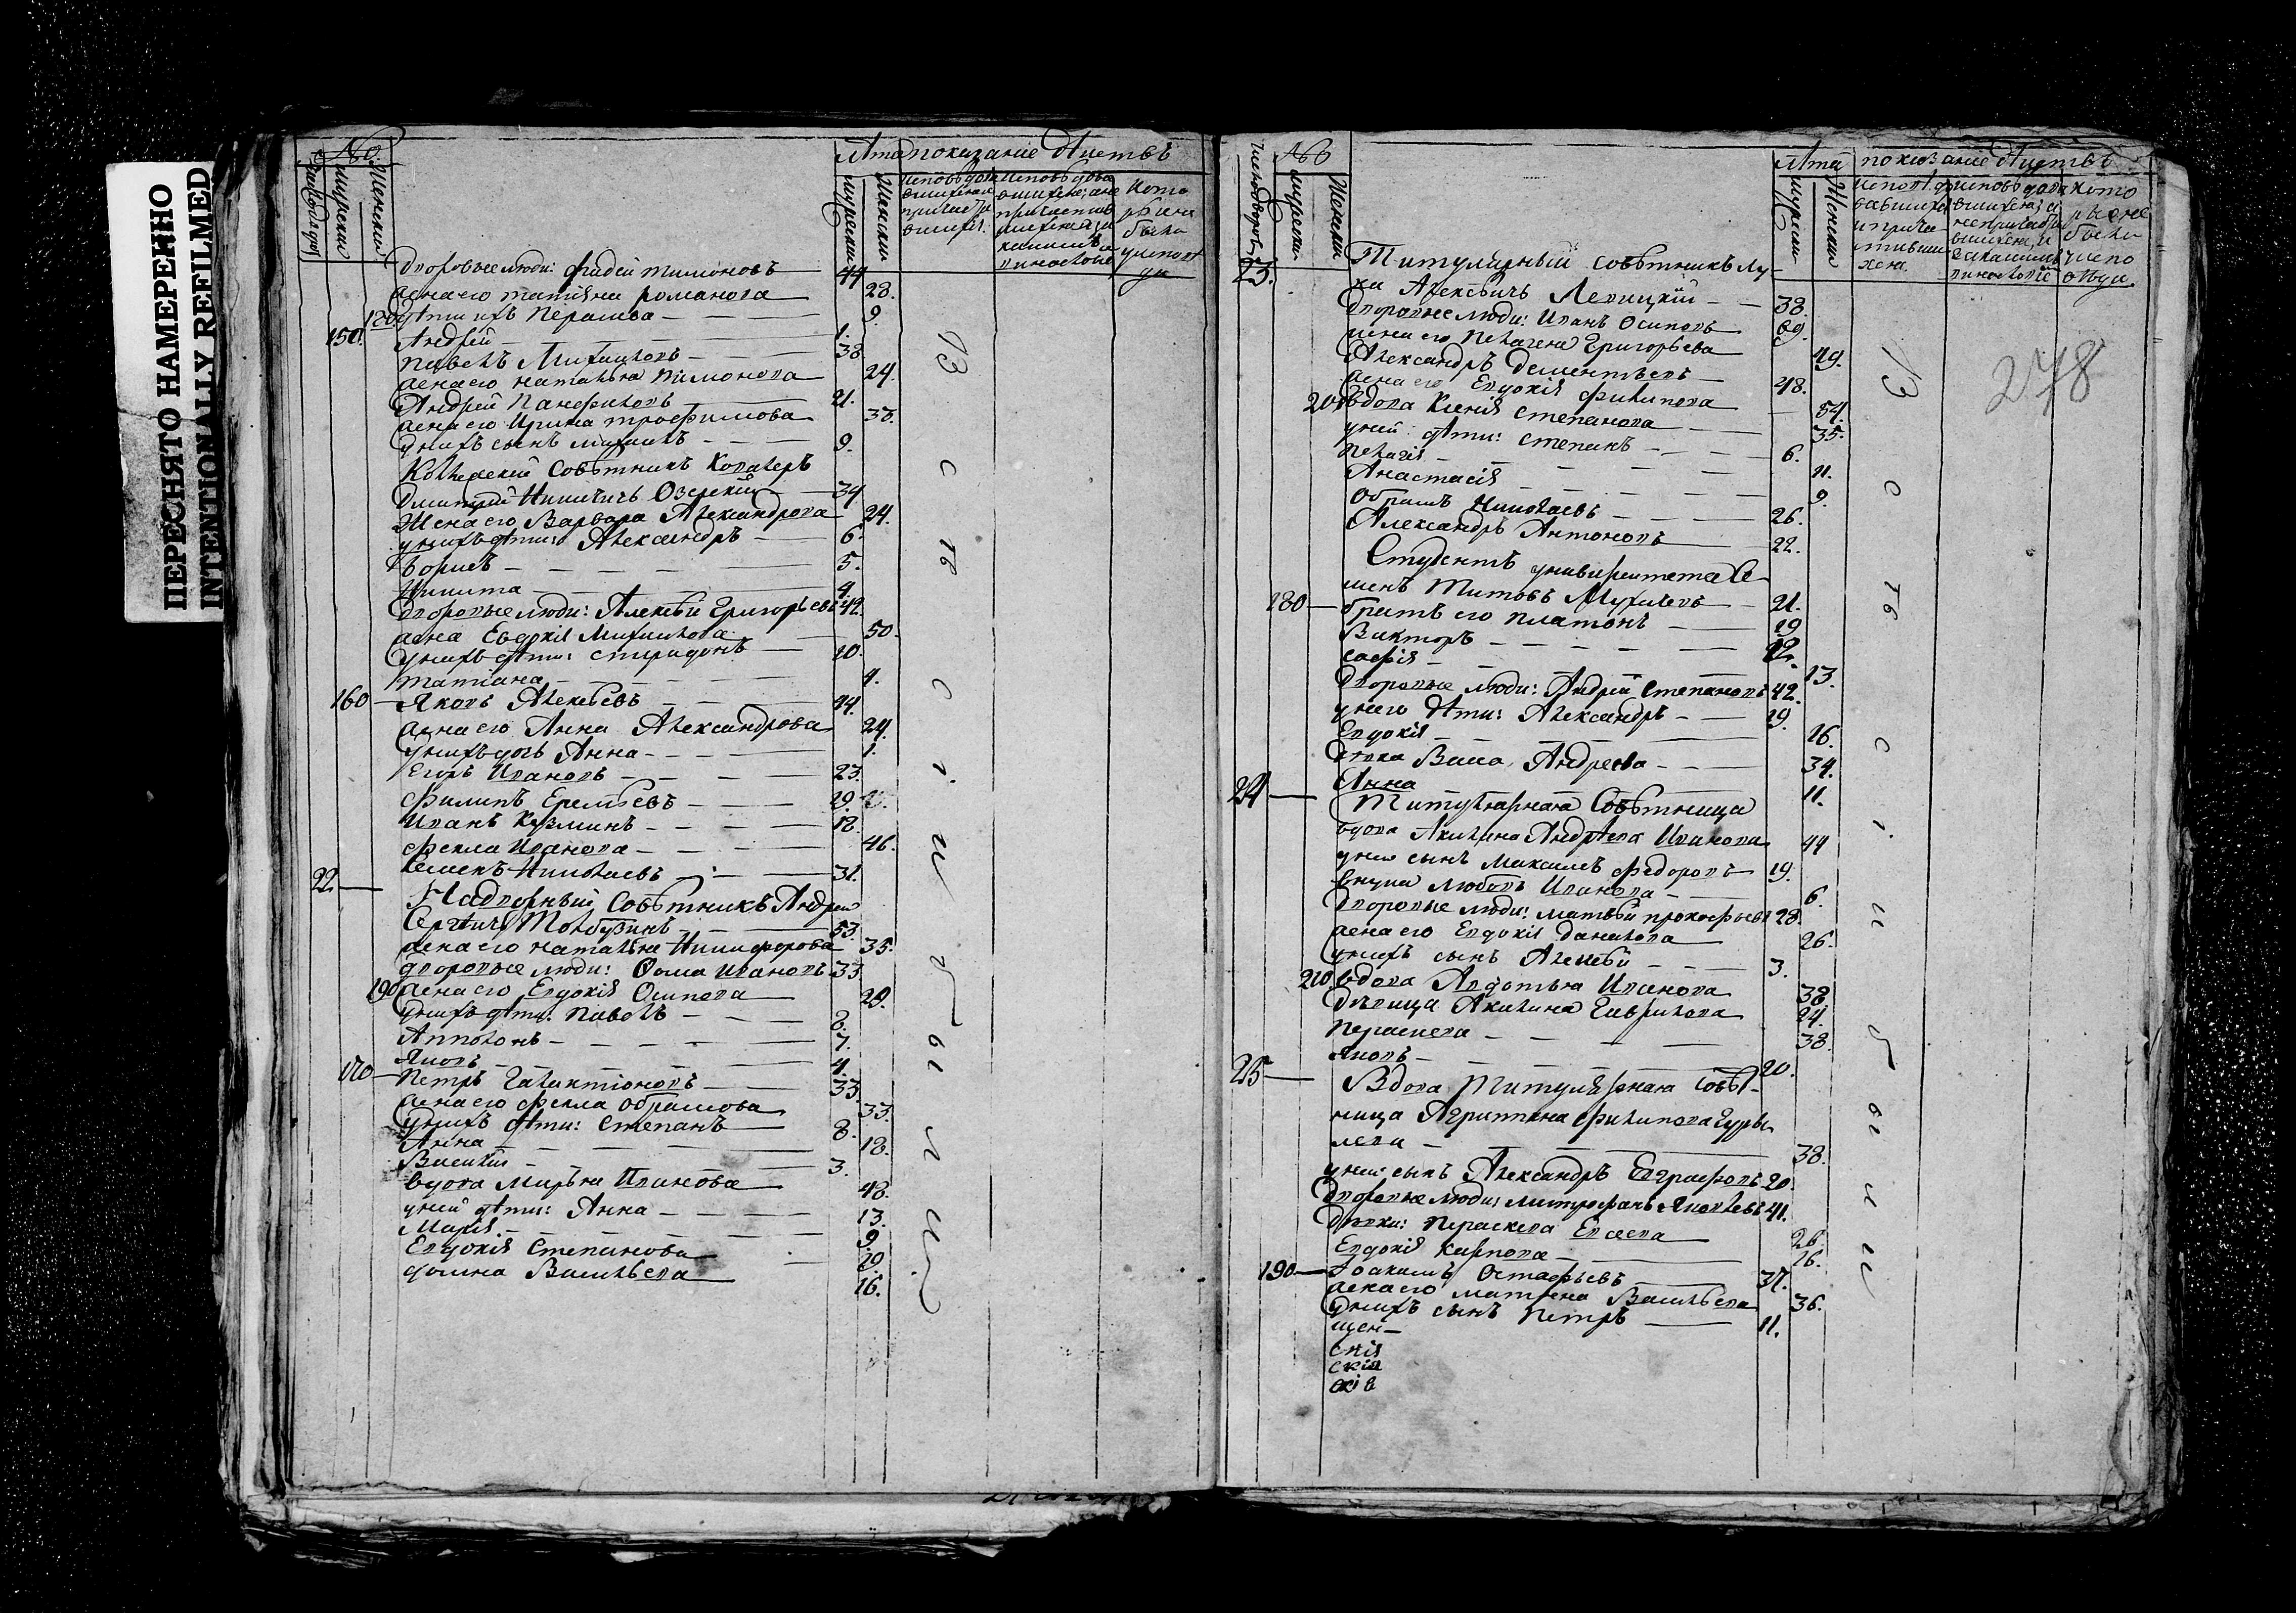 ПЕРЕСНЯТО НАМЕРЕННО
INTENTIONALLY REFILMED
№
Мужески
Женски
Лѣта показаніе дѣйствъ
мужески
Женски
Дворовые люди: Фадей Тимоновъ 44
жена его Татіяна Романова 28.
180 дѣти ихъ Перасиева 9.
150. Андрей 1.
Павелъ Михаиловъ 38
жена его Наталья Тимонова 24.
Андрей Панфиловъ 21.
жена его Ирина Трофимова 33.
у нихъ сынъ Михаилъ 9.
Коллежскій Совѣтникъ Кавалеръ
Дмитрій Никитичь Озерскій 34
Жена его Варвара Александрова 24.
у нихъ дѣти: Александръ 6.
Борисъ 5.
Никита 4.
Дворовые люди: Алексѣй Григорьевъ 42.
жена Евдокія Михаилова 50.
у нихъ дѣти: Спиридонъ 10.
Татіана 4.
160 Яковъ Алексѣевъ 44.
жена его Анна Александрова 24.
у нихъ дочь Анна 1.
Егоръ Ивановъ 23.
Филипъ Еремѣевъ 29.
Иванъ Кузминъ 18.
Фекла Иванова 46.
Семенъ Николаевъ 31.
22 Надворный Совѣтникъ Андрей
Сергѣичь Толбузинъ 53.
жена его Наталья Никифорова 35.
дворовые люди: Фома Ивановъ 33.
190 жена его Евдокія Осипова 29.
у нихъ дѣти: Павелъ 8.
Апполонъ 7.
Яковъ 4.
170 Петръ Галактіоновъ 33.
жена его Фекла Обрамова 33.
у нихъ дѣти: Степанъ 8.
Анна 18.
Василій 3.
вдова Марья Иванова 48.
у ней дѣти: Анна 13.
Марія 9.
Евдокія Степанова 29.
Домна Васильева 16.
В с ѣ с і и б ы л и
№
Мужески
Женски
Лѣта показаніе дѣйствъ
мужески
Женски
278
23. Титулярный совѣтникъ Лу-
ка Алексѣичь Левицкій 38.
Дворовые люди: Иванъ Осиповъ 69.
жена его Пелагея Григорьева 49.
Александръ Дементьевъ 48.
жена его Евдокія Филипова 54.
200 вдова Ксенія Степанова 35.
у ней дѣти: Степанъ 6.
Пелагія 11.
Анастасія 9.
Обрамъ Николаевъ 26.
Александръ Антоновъ 22.
Студентъ университета Се-
менъ Титовъ 21.
180 братъ его Платонъ 19
Викторъ 12.
Софія 13.
Дворовые люди: Андрей Степановъ 42.
у него дѣти: Александръ 19.
Евдокія 16.
Васа Андреева 34.
Анна 11.
24 Титулярная Совѣтница
вдова Акилина Андрѣева Иванова 44
у нея сынъ Максимъ Федоровъ 19.
внука Любовь Иванова 6.
Дворовые люди: Матвѣй Прокофьевъ 28.
жена его Евдокія Данилова 26.
у нихъ сынъ Алексѣй 3.
210 вдова Авдотья Иванова 38.
Дѣвица Акилина Гаврилова 24.
Перасиева 38.
Яковъ 20.
25 Вдова Титулярная Совѣт-
ница Агриппина Филипова Гурьи
лева 38.
у нея сынъ Александръ Евграфовъ 20.
Дворовые люди: Митрофанъ Яковлевъ 41.
Дѣвки: Параскева Евсеева 26.
Евдокія Карпова 26.
190 Іоакимъ Остафьевъ 37.
жена его Матрена Васильева 36.
у нихъ сынъ Петръ 11.
щен-
скія
скія
скія
В с ѣ с і и б ы л и